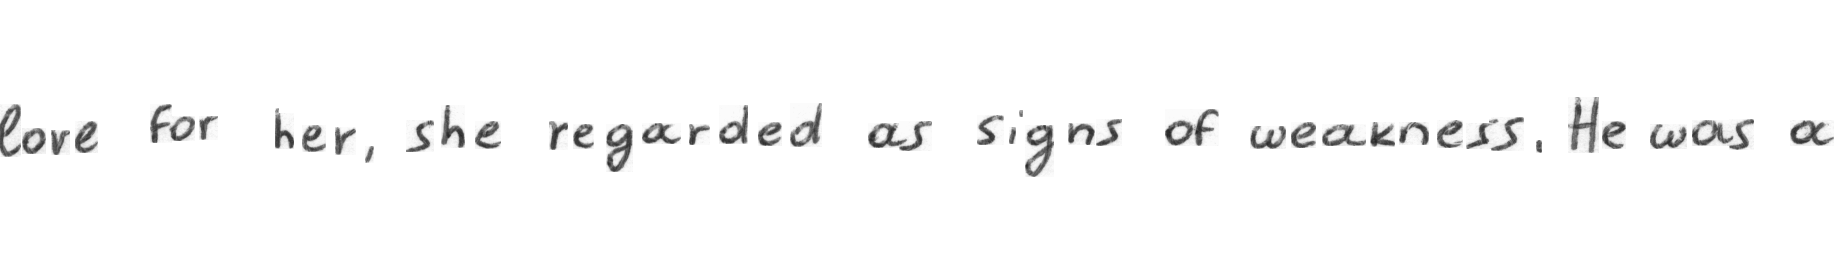 love for her, she regarded as signs of weakness. He was a